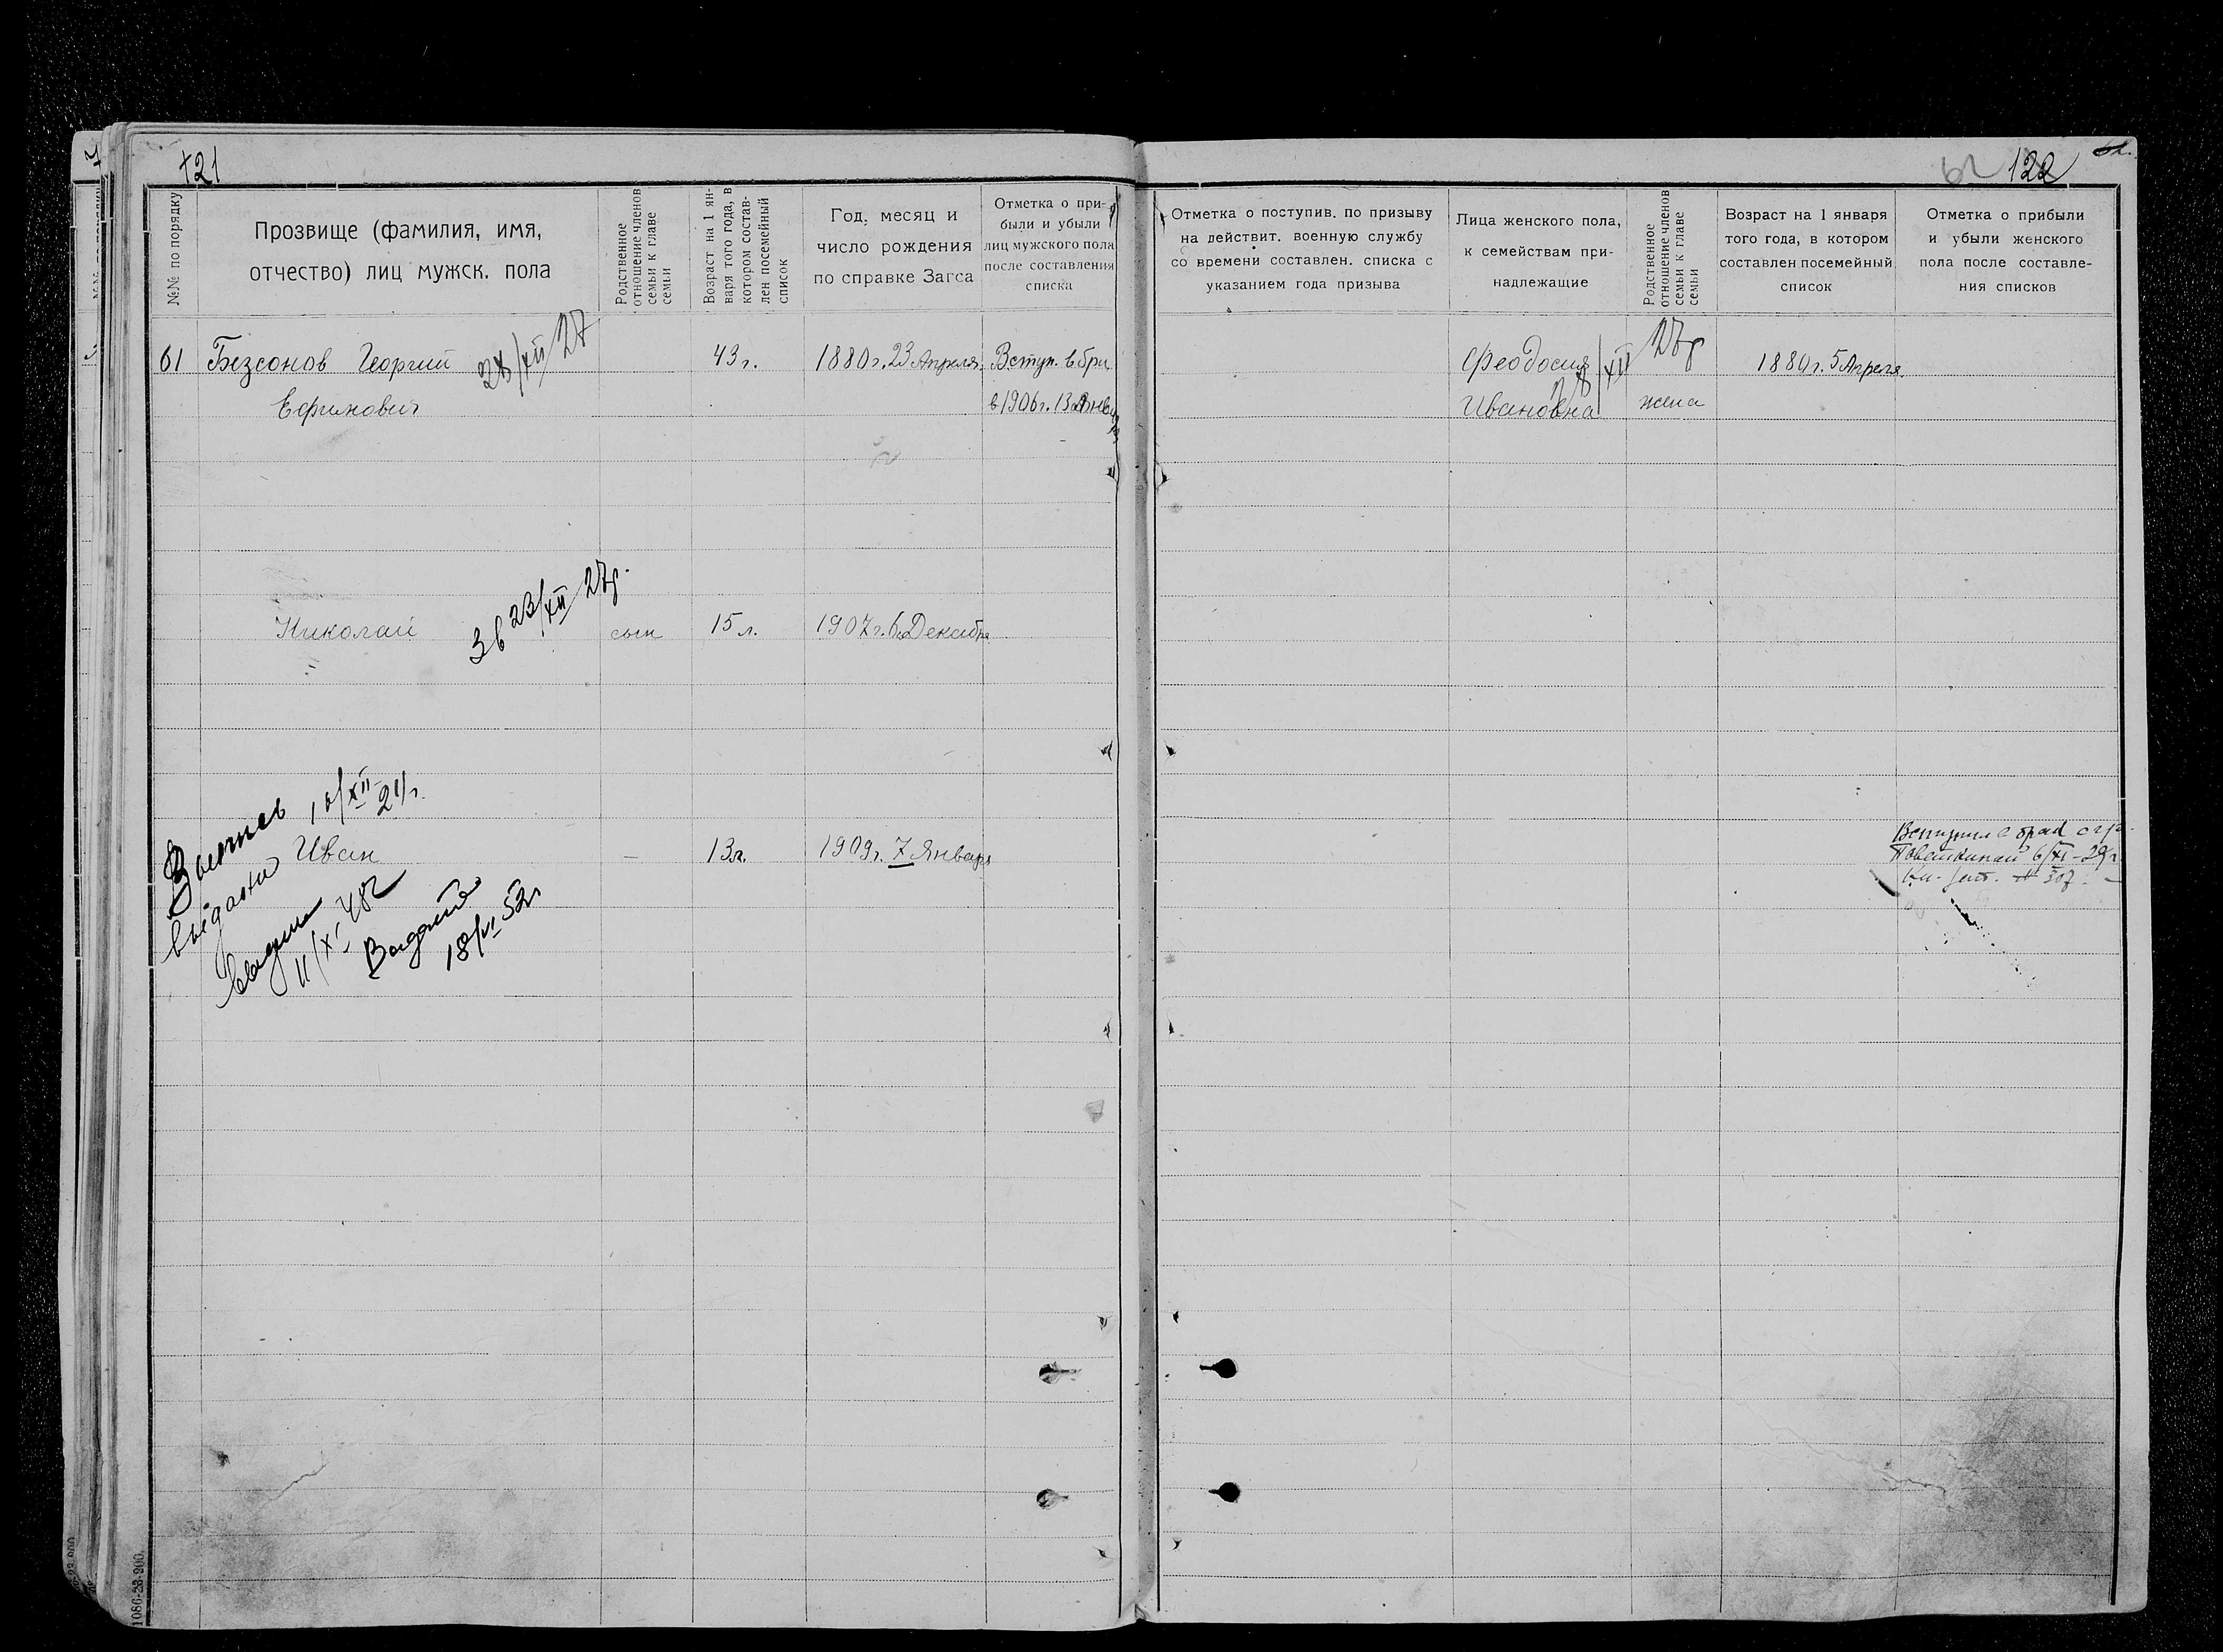 121
№№ по порядку
Прозвище (фамилия, имя,
отчество) лиц мужск. пола
Родственное
отношение членов
семьи к главе
семьи
Возраст на 1 ян-
варя того года, в
котором состав-
лен посемейный
список
Год, месяц и
число рождения
по справке Загса
Отметка о при-
были и убыли
лиц мужского пола
после составления
списка
61 Безсонов Георгий 28/XII 27 43 г. 1880 г. 23 Апреля. Вступ. в бр.
Ефимович в 1906 г. 13 Янв.
Николай Зв 23/XII 27 г. сын 15 л. 1907 г. 6 Декабря
10/XII
Иван — 13 л. 1909 г. 7 Января
выданы
11/XI 48 г
18/VI 52 г
1086-23-900.
62 122
Отметка о поступив. по призыву
на действит. военную службу
со времени составлен. списка с
указанием года призыва
Лица женского пола,
к семействам при-
надлежащие
Родственное
отношение членов
семьи к главе
семьи
Возраст на 1 января
того года, в котором
составлен посемейный
список
Отметка о прибыли
и убыли женского
пола после составле-
ния списков
Феодосия /XII 27 г 1880 г. 5 Апреля.
Ивановна жена
Вступил в брак с гр.
6/XI-29 г
№ 307.